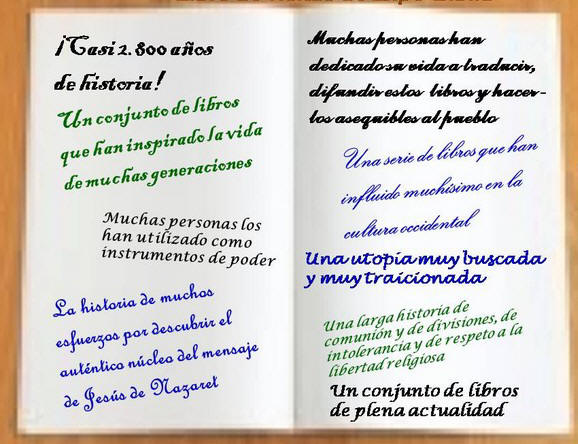 ¡Casi 2.800 años
de historia!
Un conjunto de libros
que han inspirado la vida
de muchas generaciones
Muchas personas los
han utilizado como
instrumentos de poder
La historia de muchos
esfuerzos por descubrir el
auténtico núcleo del mensaje
de Jesús de Nazaret
Muchas personas han
dedicado su vida a traducir,
difundir estos libros y hacer-
los asequibles al pueblo
Una serie de libros que han
influido muchísimo en la
cultura occidental
Una utopía muy buscada
y muy traicionada
Una larga historia de
comunión y de divisiones, de
intolerancia y de respeto a la
libertad religiosa
Un conjunto de libros
de plena actualidad